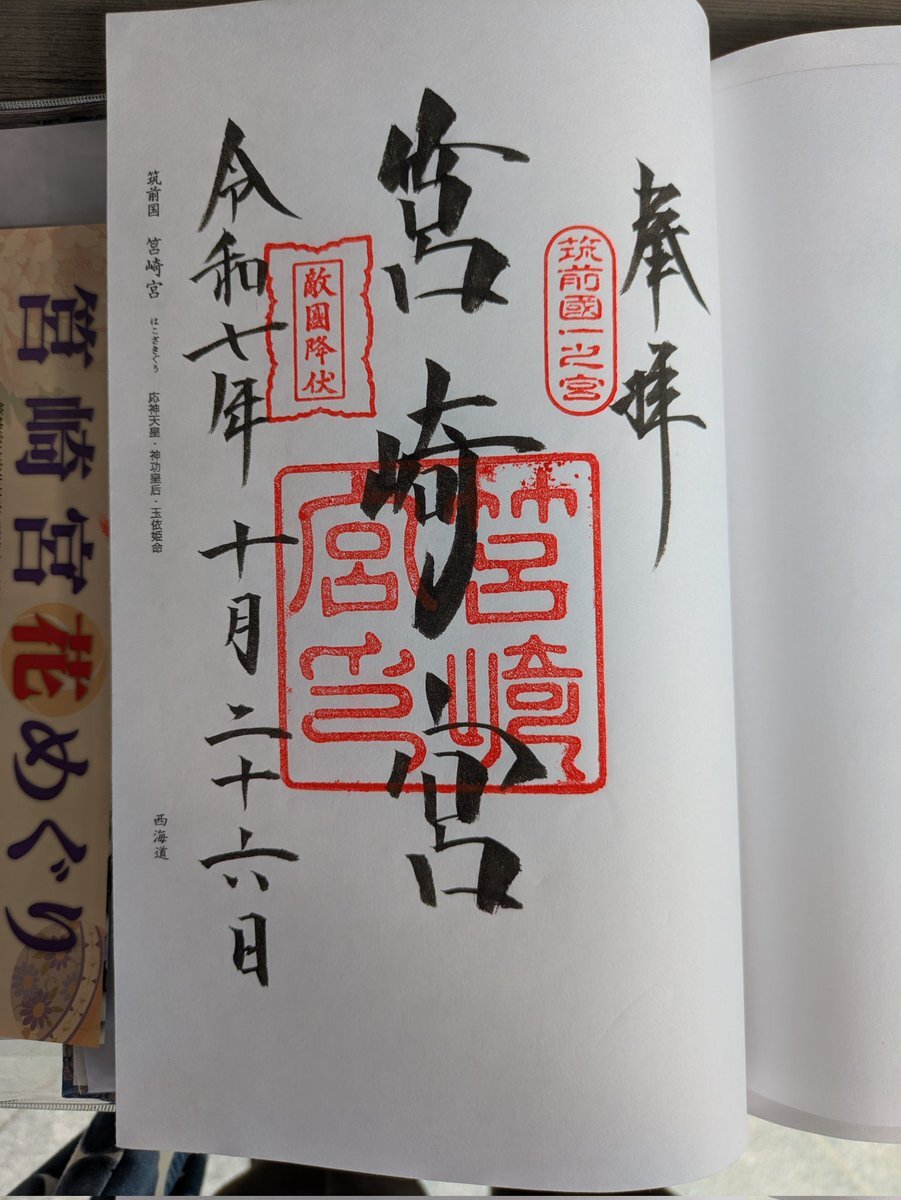 奉拝
筑前國一之宮
筥崎宮
筥崎宮印
敵國降伏
令和七年十月二十六日
筑前国 筥崎宮 はこざきぐう 応神天皇・神功皇后・玉依姫命
西海道
筥崎宮花めぐり